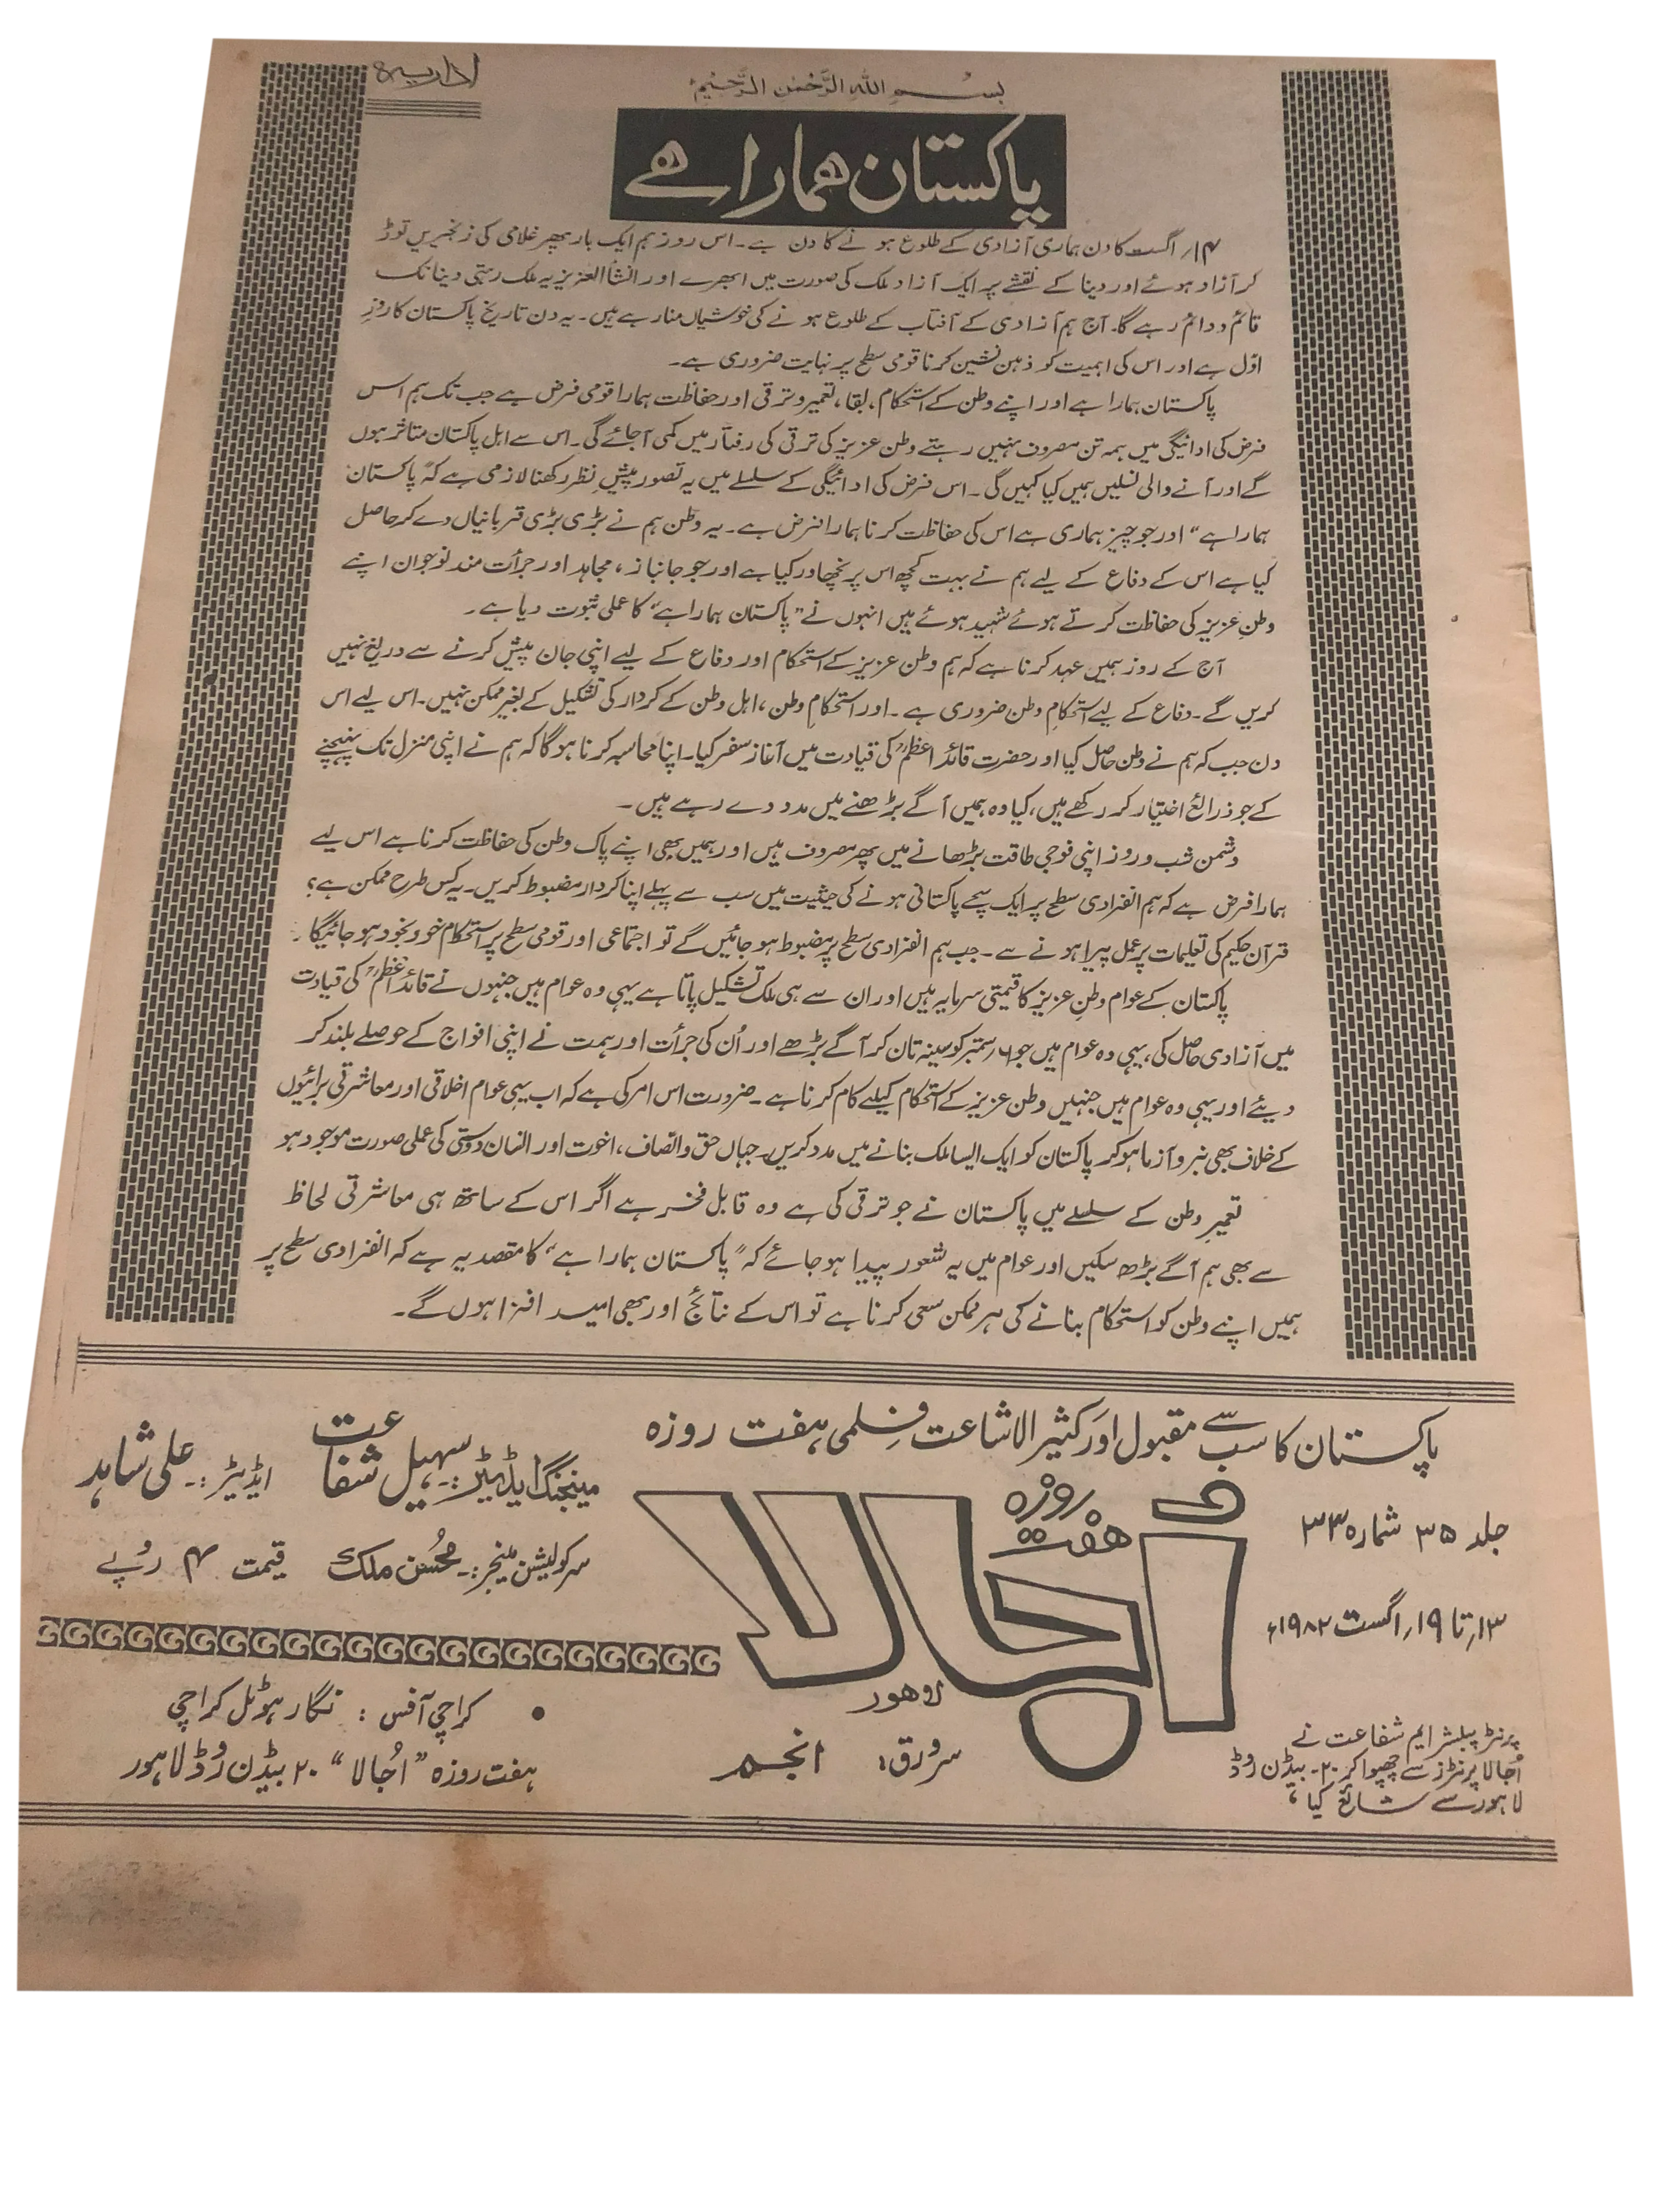 اداریہ
بسم اللہ الرحمٰن الرحیم
پاکستان ہمارا ہے
۱۴؍ اگست کا دن ہماری آزادی کے طلوع ہونے کا دن ہے۔ اس روز ہم ایک بار پھر غلامی کی زنجیریں توڑ
کر آزاد ہوئے اور دینا کے نقشے پر ایک آزاد ملک کی صورت میں ابھرے اور انشأ العزیز یہ ملک رہتی دینا تک
قائم و دائم رہے گا۔ آج ہم آزادی کے آفتاب کے طلوع ہونے کی خوشیاں منا رہے ہیں۔ یہ دن تاریخ پاکستان کا روزِ
اوّل ہے اور اس کی اہمیت کو ذہن نشین کرنا قومی سطح پر نہایت ضروری ہے۔
پاکستان ہمارا ہے اور اپنے وطن کے استحکام، بقا، تعمیر و ترقی اور حفاظت ہمارا قومی فرض ہے جب تک ہم اس
فرض کی ادائیگی میں ہمہ تن مصروف نہیں رہتے وطن عزیز کی ترقی کی رفتار میں کمی آجائے گی۔ اس سے اہل پاکستان متاثر ہوں
گے اور آنے والی نسلیں ہمیں کیا کہیں گی۔ اس فرض کی ادائیگی کے سلسلے میں یہ تصور پیشِ نظر رکھنا لازمی ہے کہ ”پاکستان
ہمارا ہے“ اور جو چیز ہماری ہے اس کی حفاظت کرنا ہمارا فرض ہے۔ یہ وطن ہم نے بڑی بڑی قربانیاں دے کر حاصل
کیا ہے اس کے دفاع کے لیے ہم نے بہت کچھ اس پر نچھاور کیا ہے اور جو جانباز، مجاہد اور جرأت مند نوجوان اپنے
وطنِ عزیز کی حفاظت کرتے ہوئے شہید ہوئے ہیں انہوں نے ”پاکستان ہمارا ہے“ کا عملی ثبوت دیا ہے۔
آج کے روز ہمیں عہد کرنا ہے کہ ہم وطن عزیز کے استحکام اور دفاع کے لیے اپنی جان پیش کرنے سے دریغ نہیں
کریں گے۔ دفاع کے لیے استحکامِ وطن ضروری ہے۔ اور استحکامِ وطن، اہل وطن کے کردار کی تشکیل کے بغیر ممکن نہیں۔ اس لیے اس
دن جب کہ ہم نے وطن حاصل کیا اور حضرت قائد اعظمؒ کی قیادت میں آغاز سفر کیا۔ اپنا محاسبہ کرنا ہوگا کہ ہم نے اپنی منزل تک پہنچنے
کے جو ذرائع اختیار کر رکھے ہیں، کیا وہ ہمیں آگے بڑھنے میں مدد دے رہے ہیں۔
دشمن شب و روز اپنی فوجی طاقت بڑھانے میں پھر مصروف ہیں اور ہمیں بھی اپنے پاک وطن کی حفاظت کرنا ہے اس لیے
ہمارا فرض ہے کہ ہم انفرادی سطح پر ایک سچے پاکستانی ہونے کی حیثیت میں سب سے پہلے اپنا کردار مضبوط کریں۔ یہ کس طرح ممکن ہے؟
قرآن حکیم کی تعلیمات پر عمل پیرا ہونے سے۔ جب ہم انفرادی سطح پر مضبوط ہو جائیں گے تو اجتماعی اور قومی سطح پر استحکام خود بخود ہو جائیگا۔
پاکستان کے عوام وطنِ عزیز کا قیمتی سرمایہ ہیں اور ان سے ہی ملک تشکیل پاتا ہے یہی وہ عوام ہیں جنہوں نے قائد اعظمؒ کی قیادت
میں آزادی حاصل کی، یہی وہ عوام ہیں جو ۶؍ ستمبر کو سینہ تان کر آگے بڑھے اور اُن کی جرأت اور ہمت نے اپنی افواج کے حوصلے بلند کر
دیئے اور یہی وہ عوام ہیں جنہیں وطن عزیز کے استحکام کیلئے کام کرنا ہے۔ ضرورت اس امر کی ہے کہ اب یہی عوام اخلاقی اور معاشرتی برائیوں
کے خلاف بھی نبرد آزما ہو کر پاکستان کو ایک ایسا ملک بنانے میں مدد کریں۔ جہاں حق و انصاف، اخوت اور انسان دوستی کی عملی صورت موجود ہو
تعمیرِ وطن کے سلسلے میں پاکستان نے جو ترقی کی ہے وہ قابل فخر ہے اگر اس کے ساتھ ہی معاشرتی لحاظ
سے بھی ہم آگے بڑھ سکیں اور عوام میں یہ شعور پیدا ہو جائے کہ ”پاکستان ہمارا ہے“ کا مقصد یہ ہے کہ انفرادی سطح پر
ہمیں اپنے وطن کو استحکام بنانے کی ہر ممکن سعی کرنا ہے تو اس کے نتائج اور بھی امید افزا ہوں گے۔
پاکستان کا سب سے مقبول اور کثیر الاشاعت فلمی ہفت روزہ
ہفت روزہ
اُجالا
لاہور
جلد ۳۵ شمارہ ۳۳
۱۳؍ تا ۱۹؍ اگست ۱۹۸۲ء
پرنٹر پبلشر ایم شفاعت نے
اُجالا پرنٹرز سے چھپوا کر ۲۰۔ بیڈن روڈ
لاہور سے شائع کیا،
سرورق: انجم
مینجنگ ایڈیٹر:۔ سہیل شفاعت ایڈیٹر:۔ علی شاہد
سرکولیشن مینجر:۔ محسُن ملک قیمت ۴ روپے
کراچی آفس : نگار ہوٹل کراچی
ہفت روزہ ”اُجالا“ ۲۰ بیڈن روڈ لاہور